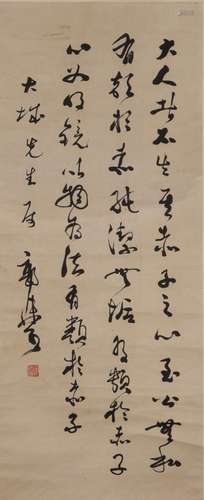 大人者不失其赤子之心至公無私
有類於赤純潔無垢有類於赤子
心如明鏡以物為法有類於赤子
大城先生屬